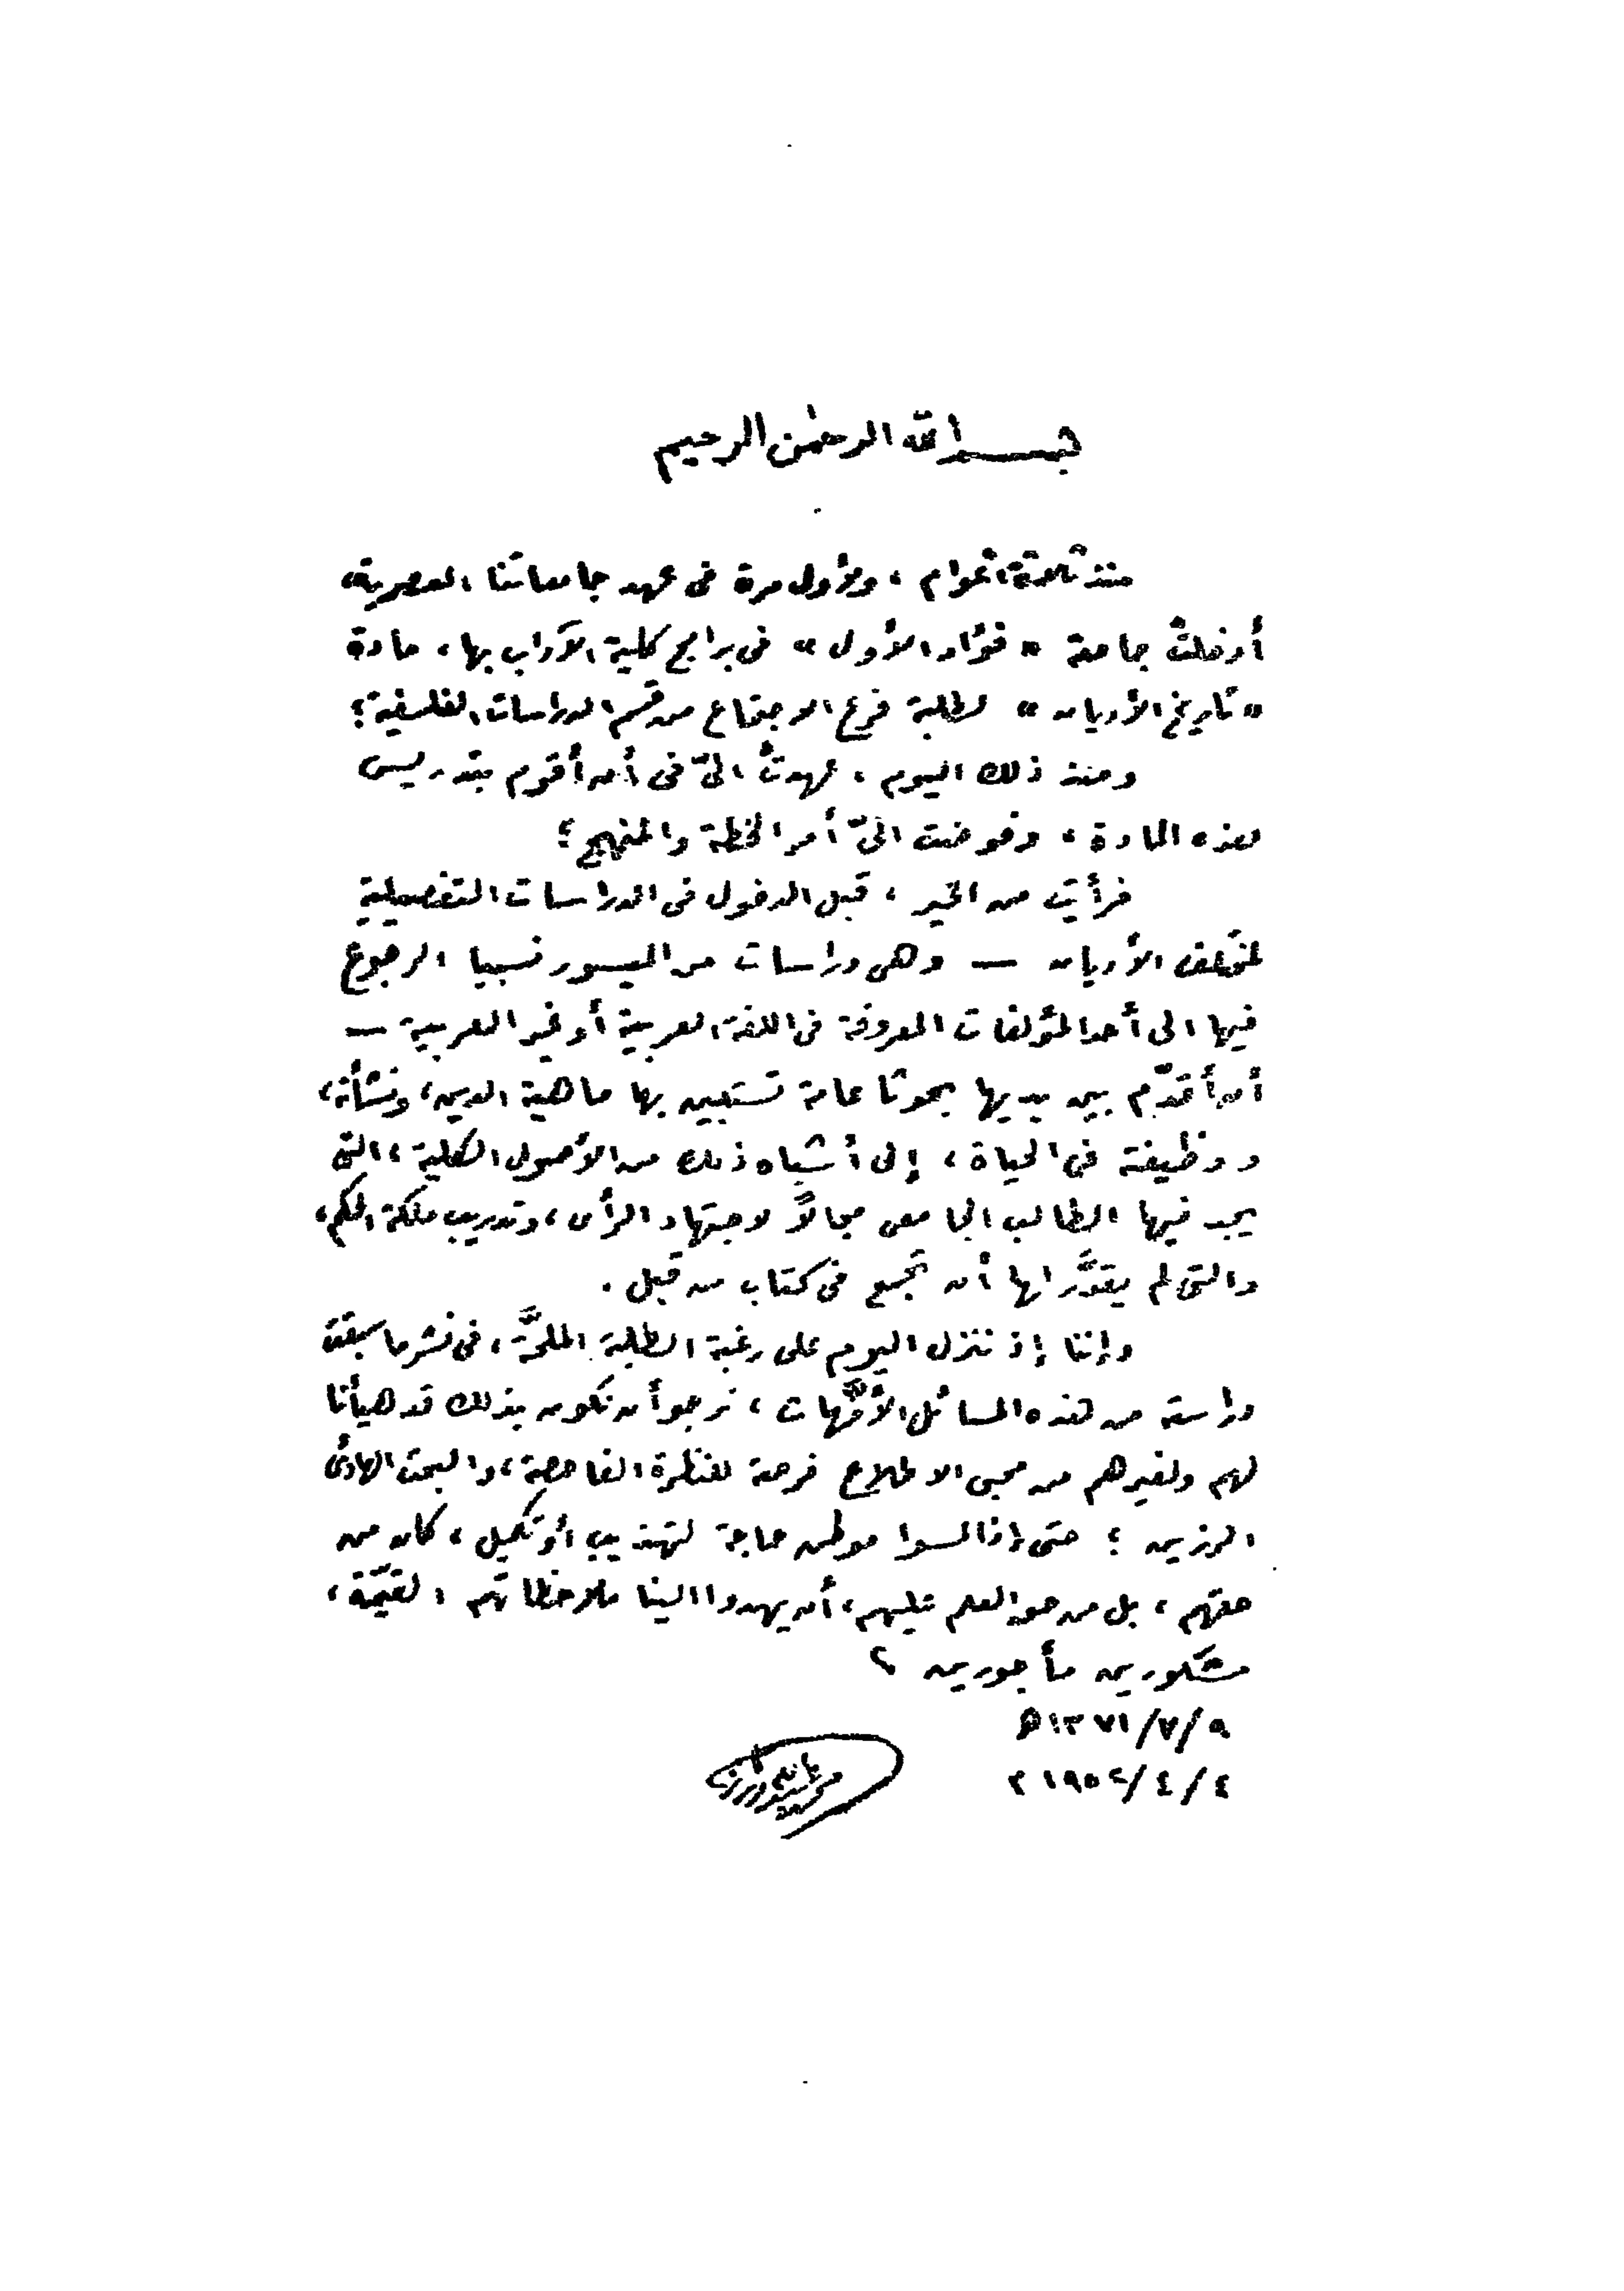 بسم الله الرحمن الرحيم
منذ ثلاثة أعوام ، ولأول مرة فى عهد جامعاتنا العصرية ،
أدخلتْ جامعة « فؤاد الأول » فى برامج كلية الآداب بها ، مادة
« تاريخ الأديان » لطلبة فرع الاجتماع من قسم الدراسات الفلسفية ؛
ومنذ ذلك اليوم ، عهدتْ الىّ فى أن أقوم بتدريس
هذه المادة ، وفوضت الىّ أمر الخطة والمنهج ؛
فرأيت من الخير ، قبل الدخول فى الدراسات التفصيلية
لمختلف الأديان — وهى دراسات من الميسور نسبيا الرجوع
فيها الى أحد المؤلفات المعروفة فى اللغة العربية أو غير العربية —
أن أقدّم بين يديها بحوثا عامة تستبين بها ماهية الدين ، ونشأته ،
ووظيفته فى الحياة ، إلى أشباه ذلك من الأصول الكلية ، التى
يجد فيها الطالب الجامعى مجالاً لاجتهاد الرأى ، وتدريب ملكة الحكم ،
والتى لم يقدَّر لها أن تجمع فى كتاب من قبل .
وإننا إذ ننزل اليوم على رغبة الطلبة الملحَّة ، فى نشر ما سبقت
دراسته من هذه المسائل الأمَّهات ، نرجو أن نكون بذلك قد هيأنا
لهم ولغيرهم من محبى الاطلاع فرصة للنظرة الفاحصة ، والبحث الهادئ
الرزين ؛ حتى إذا لمسوا موطن حاجة لتهذيب أو تكميل ، كان من
حقهم ، بل من حق العلم عليهم ، أن يهدوا الينا ملاحظاتهم القيّمة ،
مشكورين مأجورين
٩/٧/١٣٧١ ھ
٤/٤/١٩٥٢ م
محمد عبد الله دراز